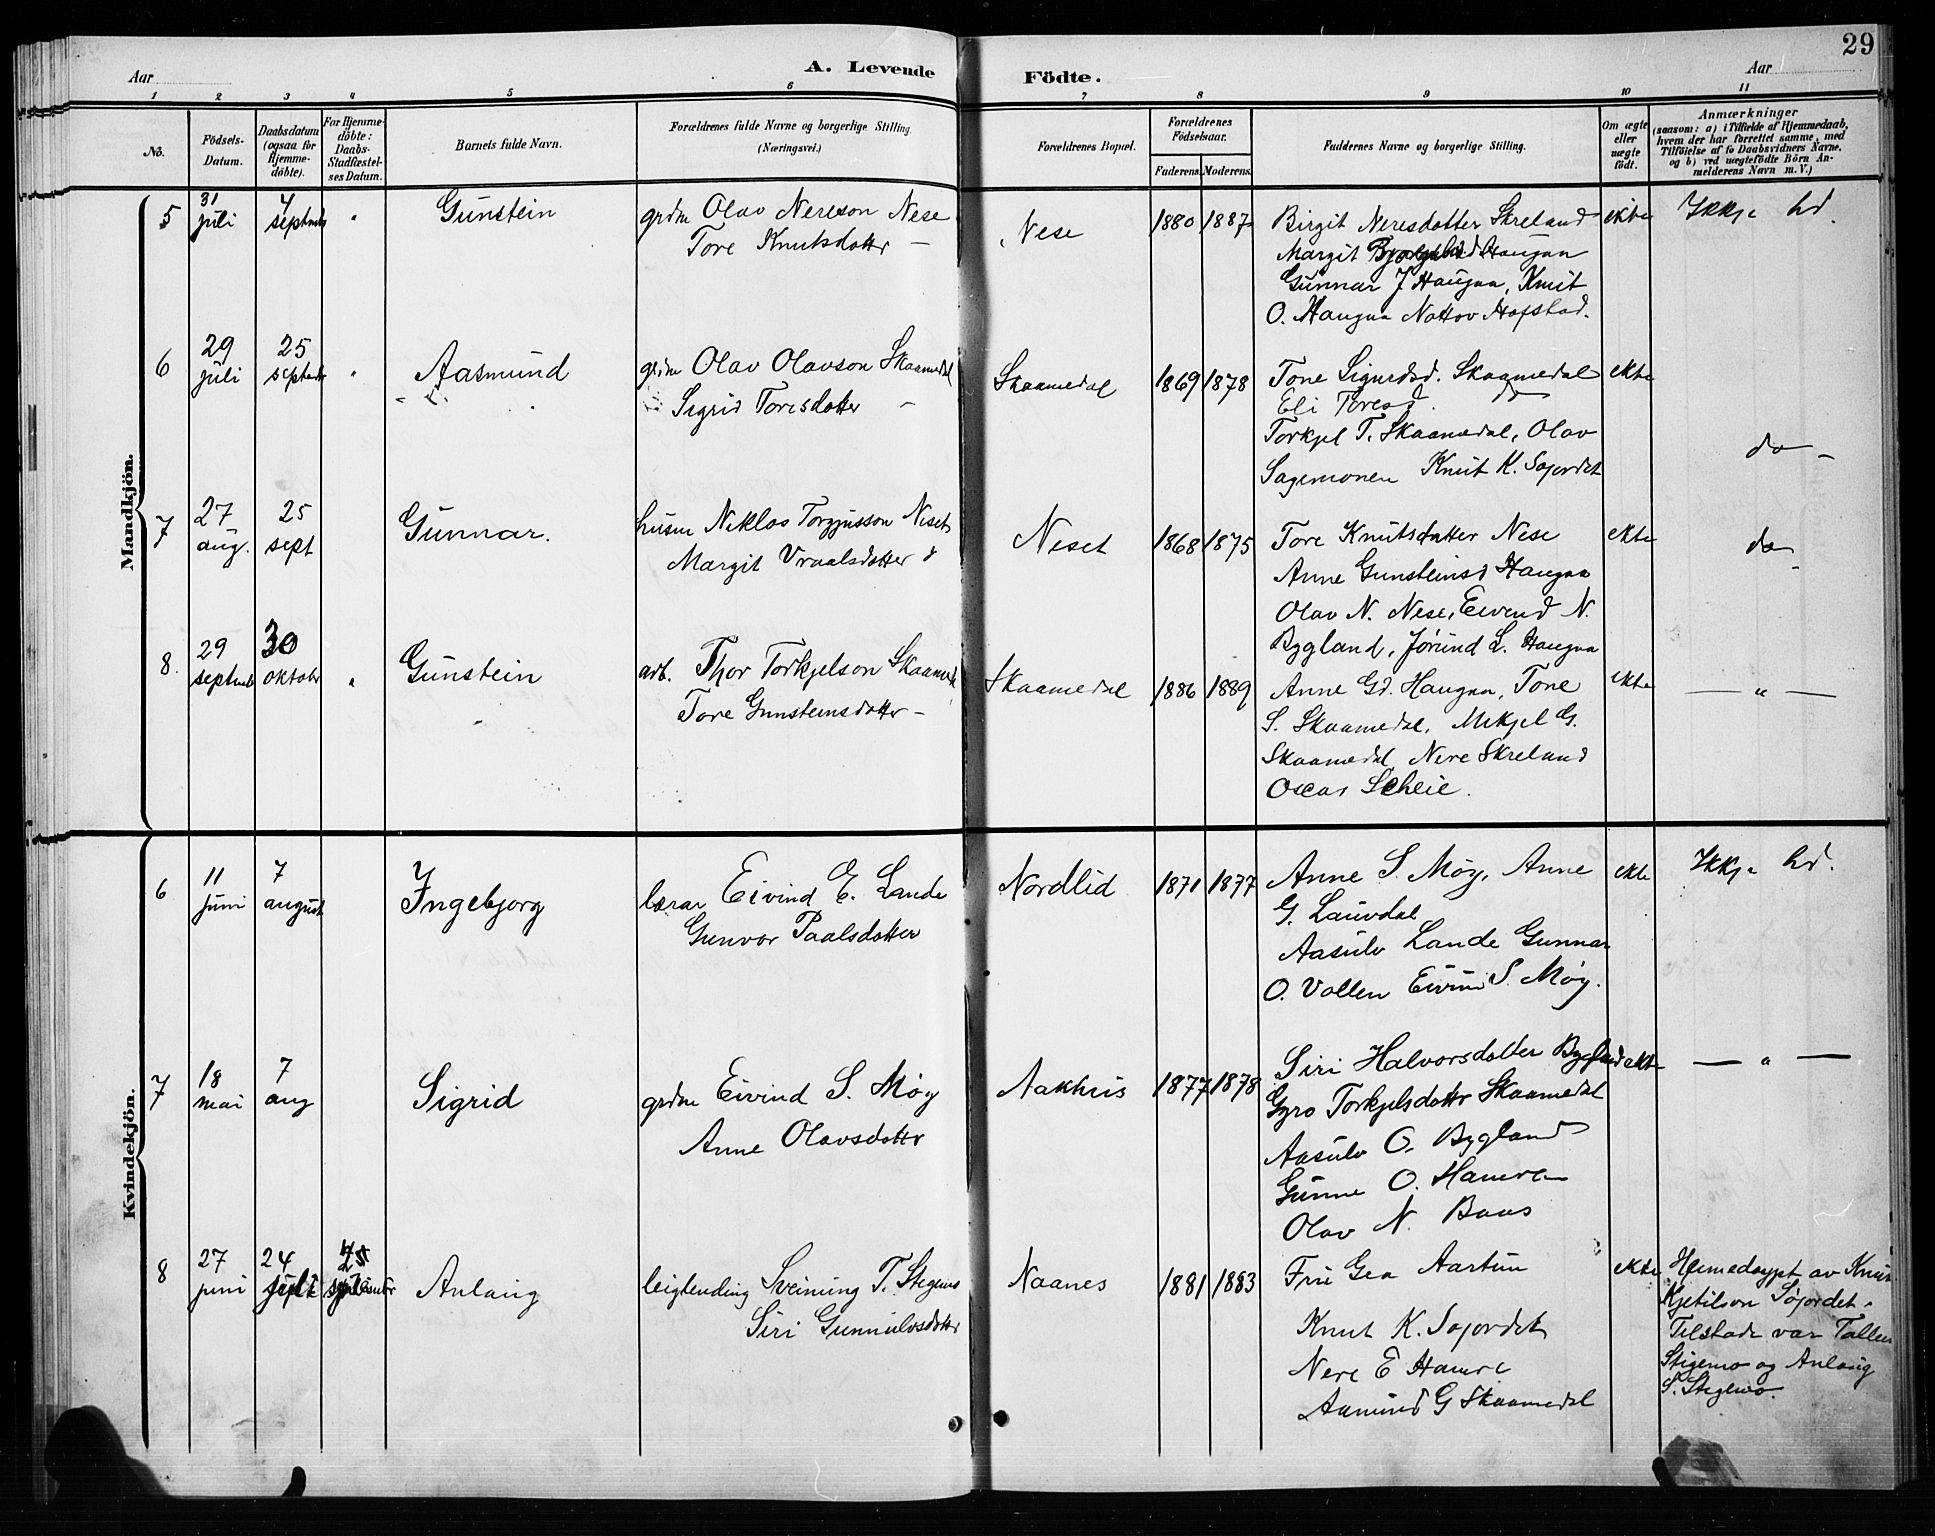 29
Aar
A. Levende Födte.
Aar
1 2 3 4 5 6 7 8 9 10 11
No.
Födsels-Datum.
Daabsdatum (ogsaa for Hjemme-döbte).
For Hjemme-döbte: Daabs-Stadfæstel-ses Datum.
Barnets fulde Navn.
Forældrenes fulde Navne og borgerlige Stilling. (Næringsvei.)
Forældrenes Bopæl.
Forældrenes Födselsaar.
Faderens. Moderens.
Faddernes Navne og borgerlige Stilling.
Om ægte eller uægte födt.
Anmærkninger
(saasom: a) i Tilfælde af Hjemmedaab,
hvem der har forrettet samme, med
Tilföielse af to Daabsvidners Navne,
og b) ved uægtefödte Börn An-
melderens Navn m. V.)
Mandkjön.
5 31 juli 4 septmb " Gunstein
grdm Olav Nereson Nese
Tore Knutsdotter —
Nese 1880 1887
Birgit Neresdotter Skreland
Margit Haugaa
Gunnar J Haugaa, Knut
O. Haugaa Nottov Hofstad.
ekte Ikkje hd.
6 29 juli 25 septmbr " Aasmund
grdm Olav Olavson Skaamedal
Sigrid Toresdotter —
Skaamedal 1869 1878
Tone Sigurdsd. Skaamedal
Eli Toresd.
Torkjel T. Skaamedal, Olav
Sagemonen Knut K. Sojordet
ekte do —
7 27 aug. 25 sept Gunnar.
husm Niklos Torgjusson Neset
Margit Vraalsdotter d
Neset 1868 1875
Tore Knutsdatter Nese
Anne Gunsteinsd Haugaa
Olav N. Nese, Eivend N.
Bygland, Jørund L. Haugaa
ekte do
8. 29 septmb 30 oktobr " Gunstein
arb. Thor Torkjelson Skaamedal
Tore Gunsteinsdotter —
Skaamedal 1886 1889
Anne Gd. Haugaa, Tone
S. Skaamedal, Mikjel G.
Skaamedal, Nere Skreland
Oscar Scheie.
ekte — " —
Kvindekjön.
6 11 juni 7 august Ingebjorg
lærar Eivind E. Lande
Gunvor Paalsdotter
Nordlid 1871 1877
Anne S. Møy, Anne
G. Lauvdal
Aasulv Lande Gunnar
O. Vollen Eivind S. Møy.
ekte Ikkje hd.
7 18 mai 7 aug Sigrid
grdm Eivind S. Møy
Anne Olavsdottr
Aakhus 1877 1878
Siri Halvorsdotter Bygland
Gyro Torkjelsdottr Skaamedal
Aasulv O. Bygland
Gunne O. Hamre
Olav N. Baas
ekte — " —
8 27 juni 24 juli 25 septembr Anlaug
leiglending Sveinung T. Stegemo
Siri Gunnulvsdotter
Naanes 1881 1883
Fru Gea Aartun
Knut K. Sojordet
Nere E Hamre
Aamund G Skaamedal
ekte Heimedøypt av Knut
Kjetilson Søjordet.
Tilstade var Tallei
Stigemo og Anlaug
S. Stegemo.